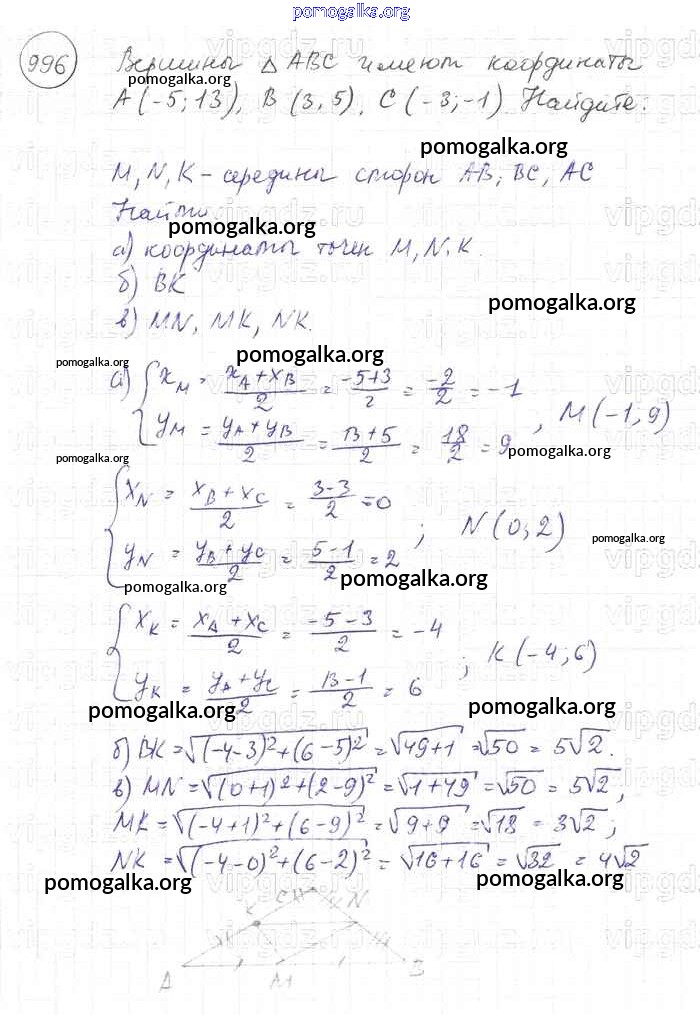 pomogalka.org
996 Вершины △ ABC имеют координаты
pomogalka.org
A (-5; 13), B (3, 5), C (-3; -1) Найдите:
pomogalka.org
M, N, K - середины сторон AB; BC; AC
Найти
pomogalka.org
а) координаты точек M, N, K.
б) BK
pomogalka.org
в) MN, MK, NK.
pomogalka.org
pomogalka.org
а) { x_M = (x_A + x_B)/2 = (-5+3)/2 = -2/2 = -1
{ y_M = (y_A + y_B)/2 = (13+5)/2 = 18/2 = 9, M (-1, 9)
pomogalka.org
pomogalka.org
{ x_N = (x_B + x_C)/2 = (3-3)/2 = 0
{ y_N = (y_B + y_C)/2 = (5-1)/2 = 2 ; N (0; 2)
pomogalka.org
pomogalka.org
pomogalka.org
{ x_K = (x_A + x_C)/2 = (-5-3)/2 = -4
{ y_K = (y_A + y_C)/2 = (13-1)/2 = 6 ; K (-4; 6)
pomogalka.org
pomogalka.org
б) BK = √((-4-3)² + (6-5)²) = √(49+1) = √50 = 5√2.
в) MN = √((0+1)² + (2-9)²) = √(1+49) = √50 = 5√2,
MK = √((-4+1)² + (6-9)²) = √(9+9) = √18 = 3√2;
NK = √((-4-0)² + (6-2)²) = √(16+16) = √32 = 4√2
pomogalka.org
pomogalka.org
C
N
K
A
M
B